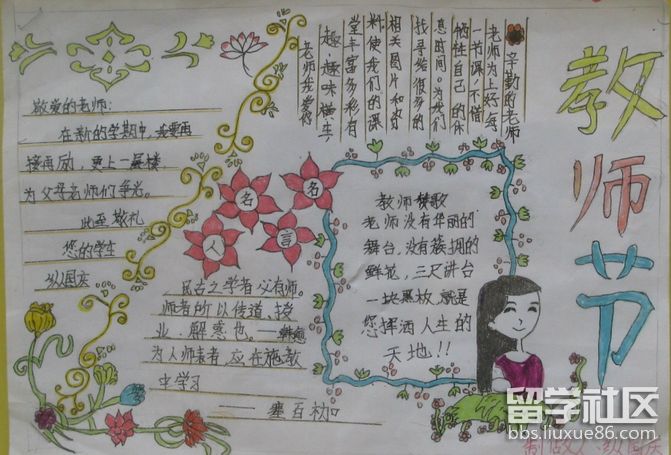 教师节
辛勤的老师
老师为上好每
一节课,不惜
牺牲自己的休
息时间。为我们
找寻给很多的
相关图片和资
料,使我们的课
堂丰富多彩有
趣,趣味横生
老师我爱你
敬爱的老师:
在新的学期中,我要再
接再励,更上一层楼,
为父母老师们争光。
此至敬礼
您的学生
名人名言
古之学者必有师。
师者所以传道,授
业,解惑也。——韩愈
为人师表者,应在施教
中学习
——塞百初
教师赞歌
老师没有华丽的
舞台,没有簇拥的
鲜花,三尺讲台
一块黑板,就是
您挥洒人生的
天地!!
留学社区
bbs.liuxue86.com